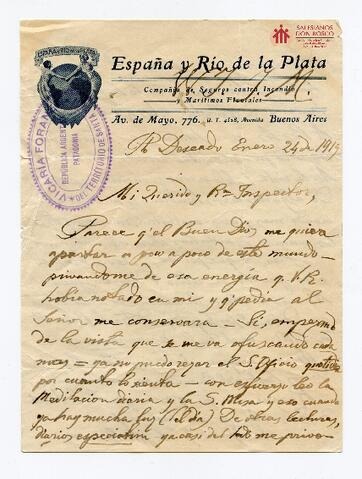 SALESIANOS
DON BOSCO
España y Rio de la Plata
Compañia de Seguros contra Incendio
y Marítimos Fluviales
Av. de Mayo, 776. U. T. 4518, Avenida Buenos Aires
VICARIA FORANEA DEL TERRITORIO DE SANTA
REPUBLICA ARGENTINA
PATAGONIA
Pto Deseado Enero 24 de 1919
Mi Querido y Rdo Inspector,
Parece q' el Buen Dios me quiere
apartar a poco a poco de este mundo
privandome de esa energía q. V. R.
habia notado en mi y q' pedia al
Señor me conservara - Si, empezando
de la vista que se me va ofuscando cada
mes = ya no puedo rezar el S. Oficio
por cuanto lo sienta - con esfuerzo leo la
Meditacion diaria y la S. Misa y eso cuando
ya hay mucha luz (el dia) De otras lecturas,
diarios especialm ya casi del todo me privo -